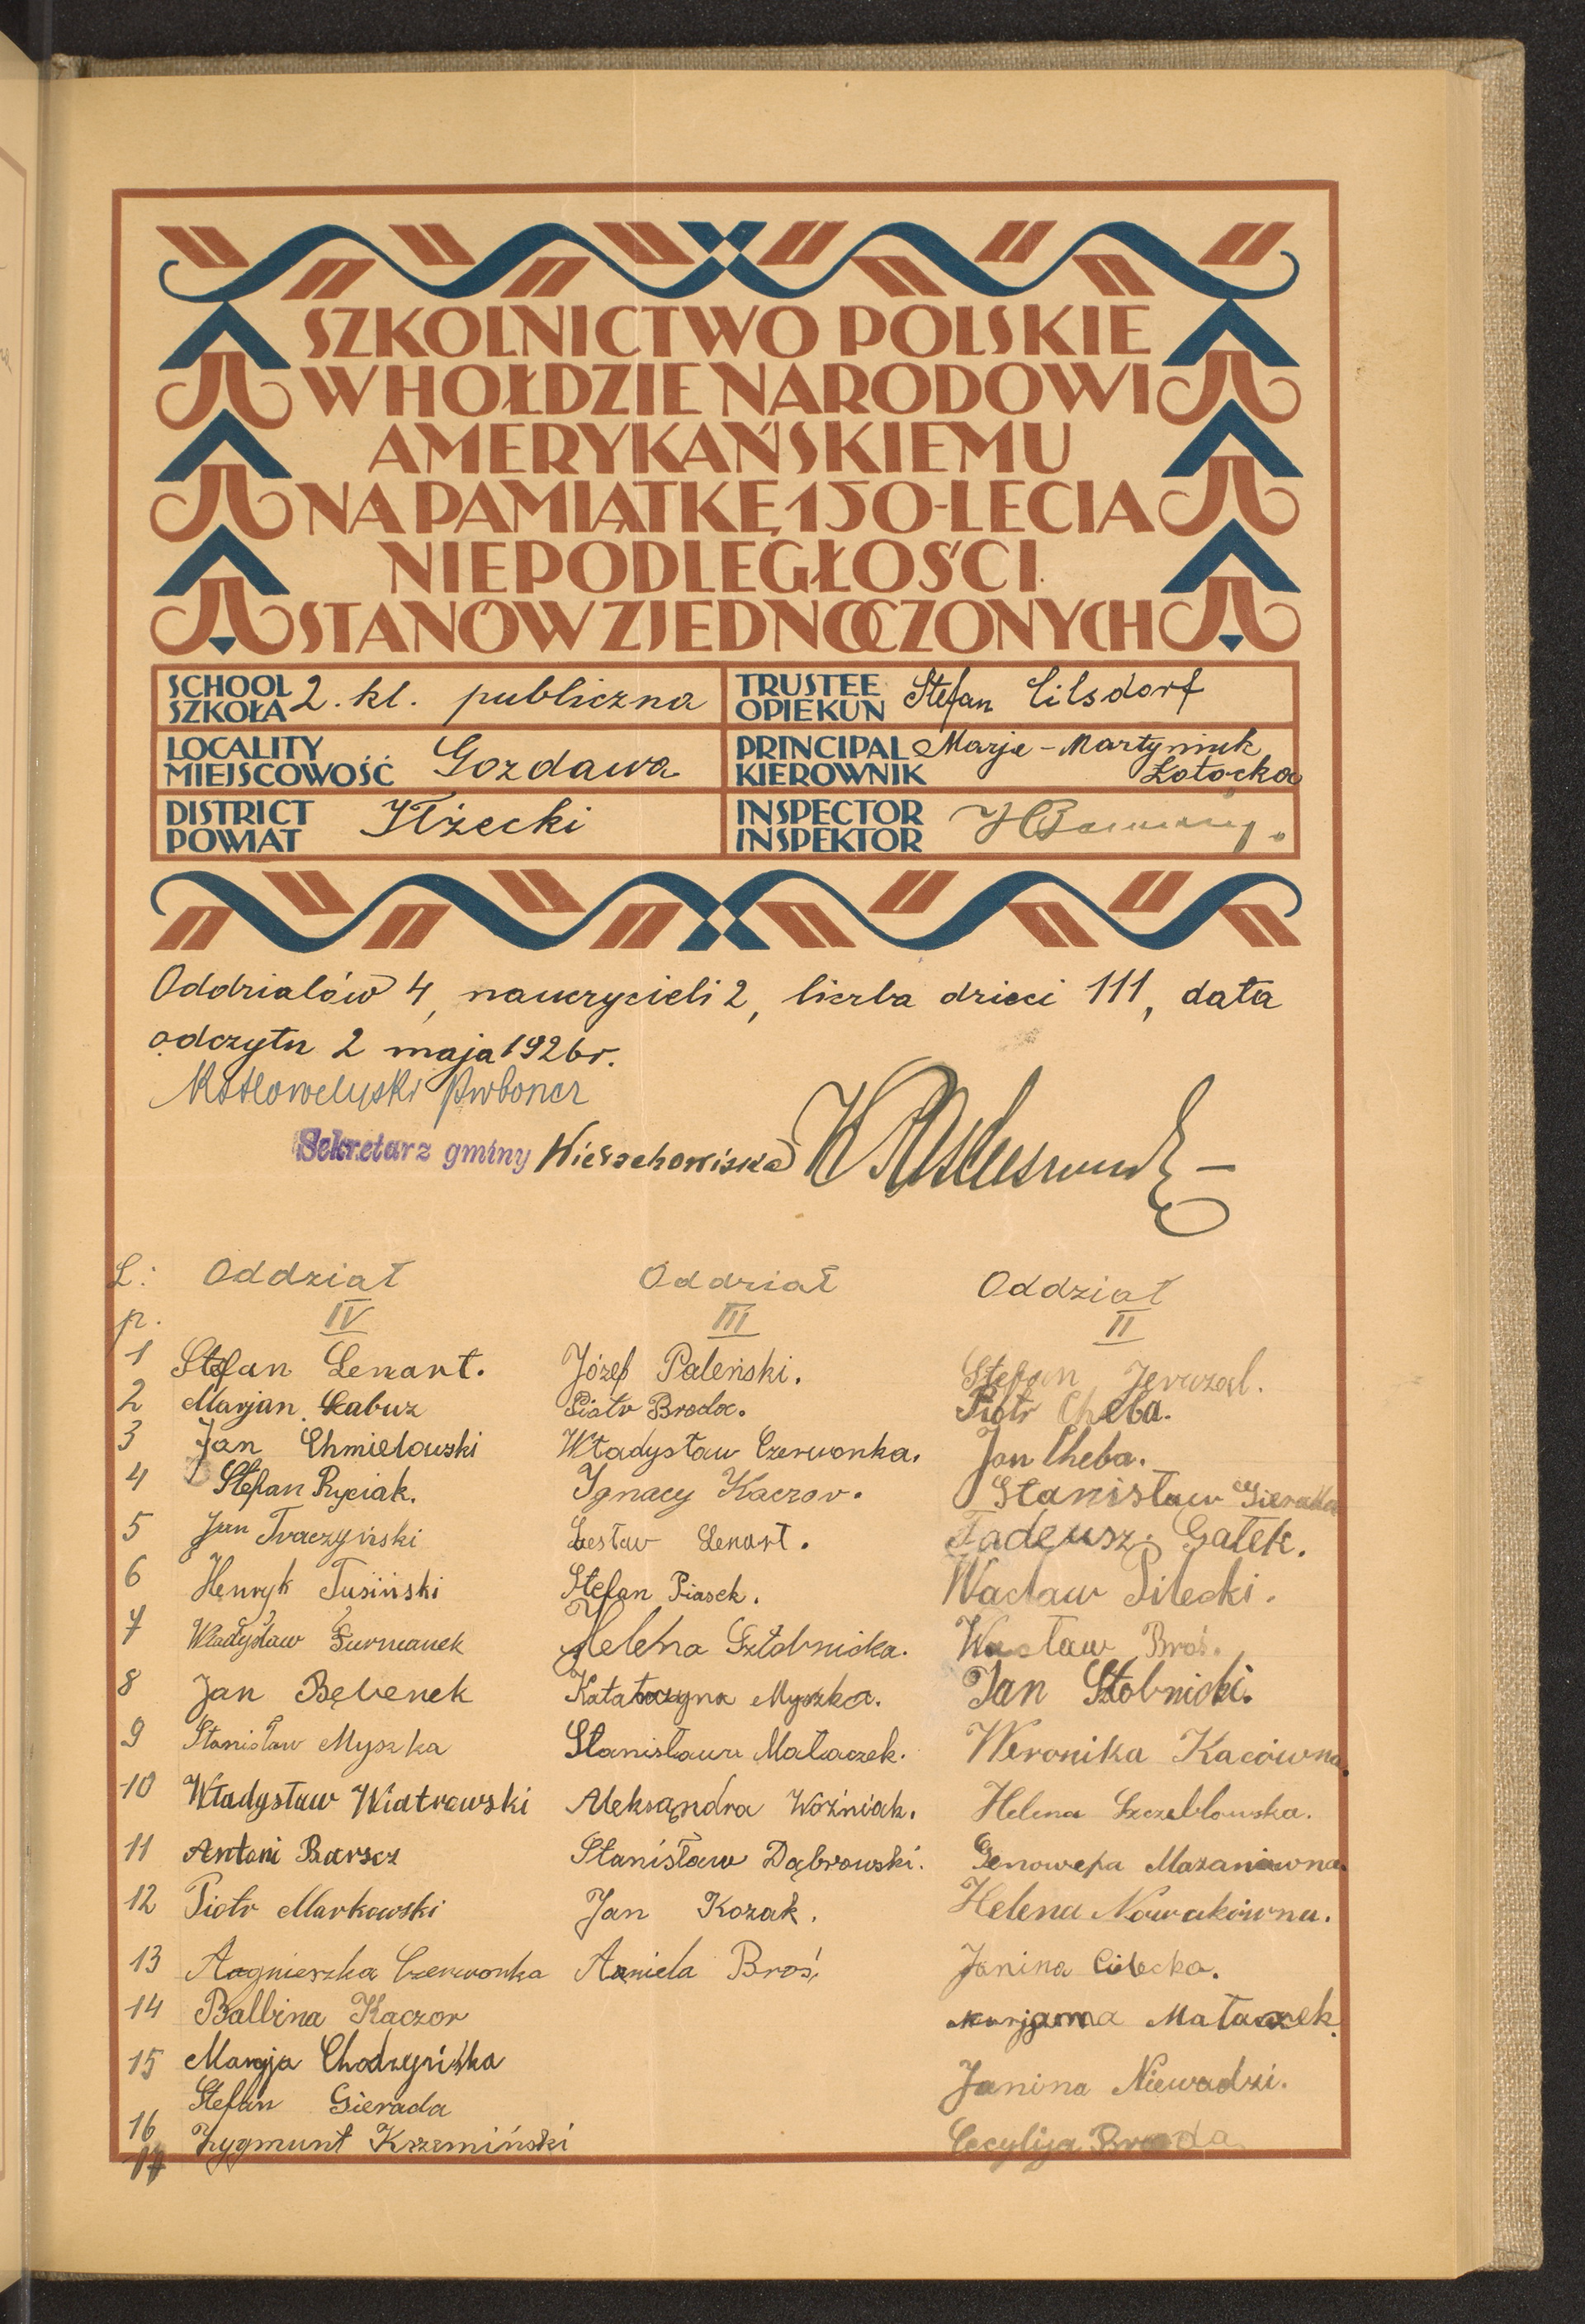 SZKOLNICTWO POLSKIE
W HOŁDZIE NARODOWI
AMERYKAŃSKIEMU
NA PAMIĄTKĘ 150-LECIA
NIEPODLEGŁOŚCI
STANÓW ZJEDNOCZONYCH
SCHOOL SZKOŁA 2. kl. publiczna
TRUSTEE OPIEKUN Stefan Cilsdorf
LOCALITY MIEJSCOWOŚĆ Gozdawa
PRINCIPAL KIEROWNIK Marja - Martyniuk Łotocka
DISTRICT POWIAT Iłżecki
INSPECTOR INSPEKTOR
Oddziałów 4, nauczycieli 2, liczba dzieci 111, data
odczytu 2 maja 1926 r.
Sekretarz gminy Wierzchowiska
L: Oddział Oddział Oddział
p. IV III II
1 Stefan Lenart. Józef Paleński. Stefan Jeruzal.
2 Marjan Łabuz Piotr Broda. Piotr Cheba.
3 Jan Chmielowski Władysław Czerwonka. Jan Cheba.
4 Stefan Ryciak. Ignacy Kaczor. Stanisław Gierada
5 Jan Traczyński Lesław Lenart. Tadeusz Gałek.
6 Henryk Tusiński Stefan Piasek. Wacław Pilecki.
7 Władysław Furmanek Helena Sztobnicka. Wacław Broś.
8 Jan Bębenek Katarzyna Myszka. Jan Słobnicki.
9 Stanisław Myszka Stanisława Mataczek. Weronika Kacówna.
10 Władysław Wiatrowski Aleksandra Woźniak. Helena Szczebłowska.
11 Antoni Barszcz Stanisław Dąbrowski. Genowefa Mazanówna.
12 Piotr Markowski Jan Kozak. Helena Nowakówna.
13 Aagnieszka Czerwonka Aniela Broś, Janina Cielecka.
14 Balbina Kaczor Marjanna Mataczek.
15 Maryja Chodzyńska Janina Niewadzi.
Stefan Gierada
16 Zygmunt Krzemiński Cecylija Broda
17